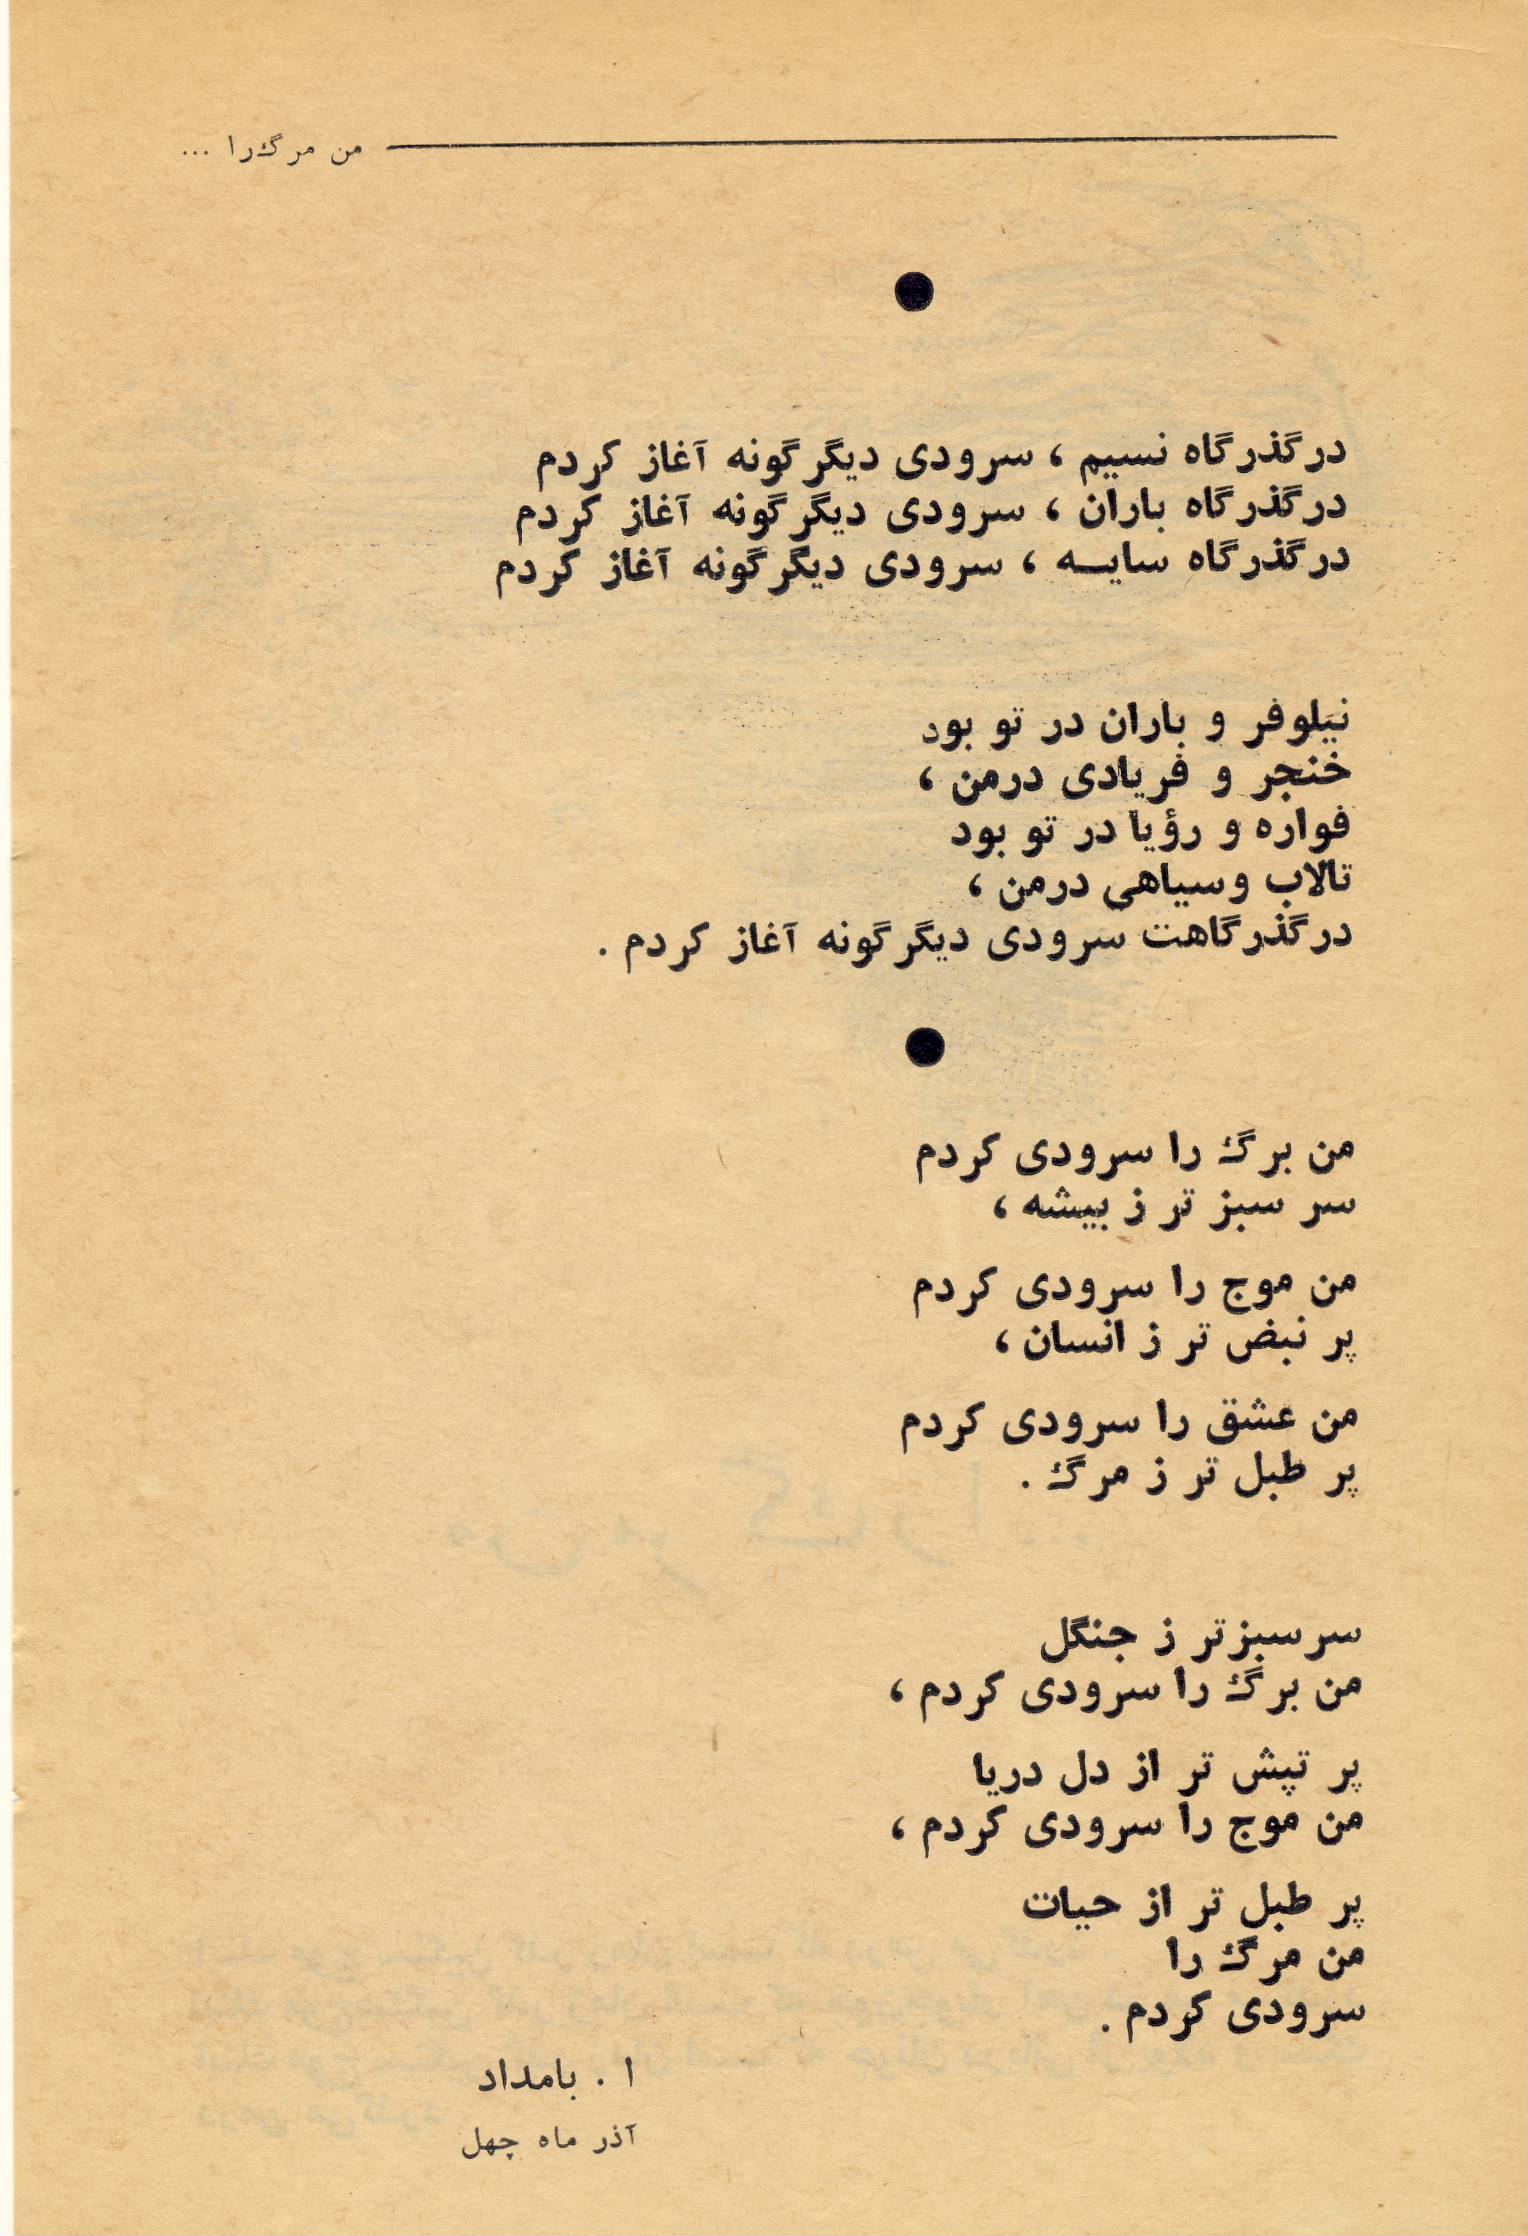 من مرگ‌را ...
در گذرگاه نسیم ، سرودی دیگر گونه آغاز کردم
در گذرگاه باران ، سرودی دیگر گونه آغاز کردم
در گذرگاه سایـه ، سرودی دیگر گونه آغاز کردم
نیلوفر و باران در تو بود
خنجر و فریادی درمن ،
فواره و رؤیا در تو بود
تالاب وسیاهی درمن ،
در گذرگاهت سرودی دیگر گونه آغاز کردم .
من برگ را سرودی کردم
سر سبز تر ز بیشه ،
من موج را سرودی کردم
پر نبض تر ز انسان ،
من عشق را سرودی کردم
پر طبل تر ز مرگ .
سرسبزتر ز جنگل
من برگ را سرودی کردم ،
پر تپش تر از دل دریا
من موج را سرودی کردم ،
پر طبل تر از حیات
من مرگ را
سرودی کردم .
ا . بامداد
آذر ماه چهل